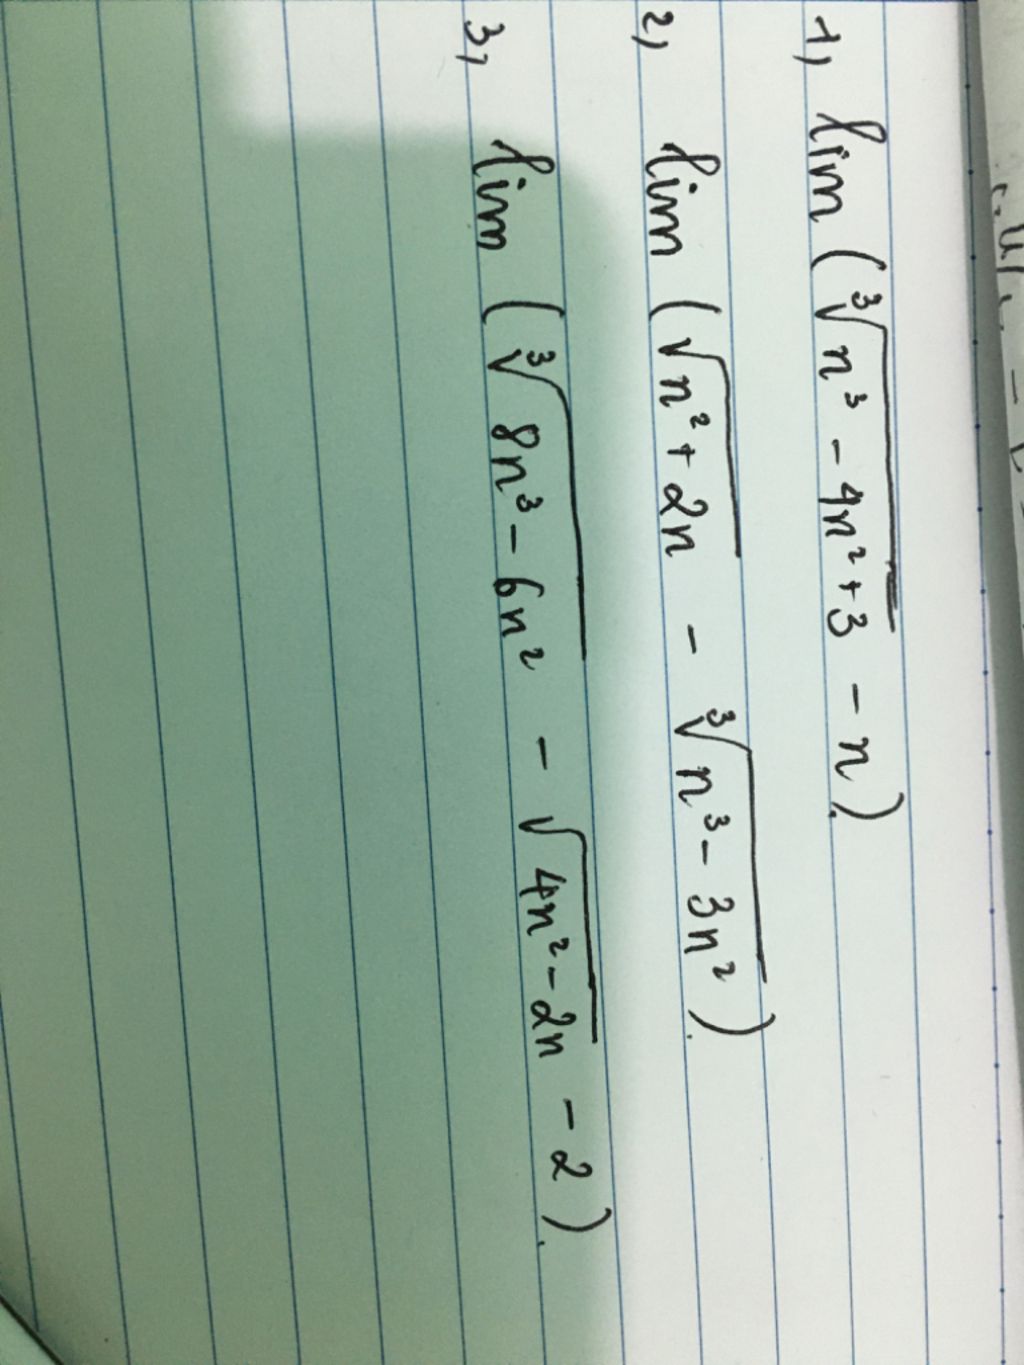 1, lim (∛(n³ - 4n² + 3) - n).
2, lim (√(n² + 2n) - ∛(n³ - 3n²)).
3, lim (∛(8n³ - 6n²) - √(4n² - 2n) - 2).